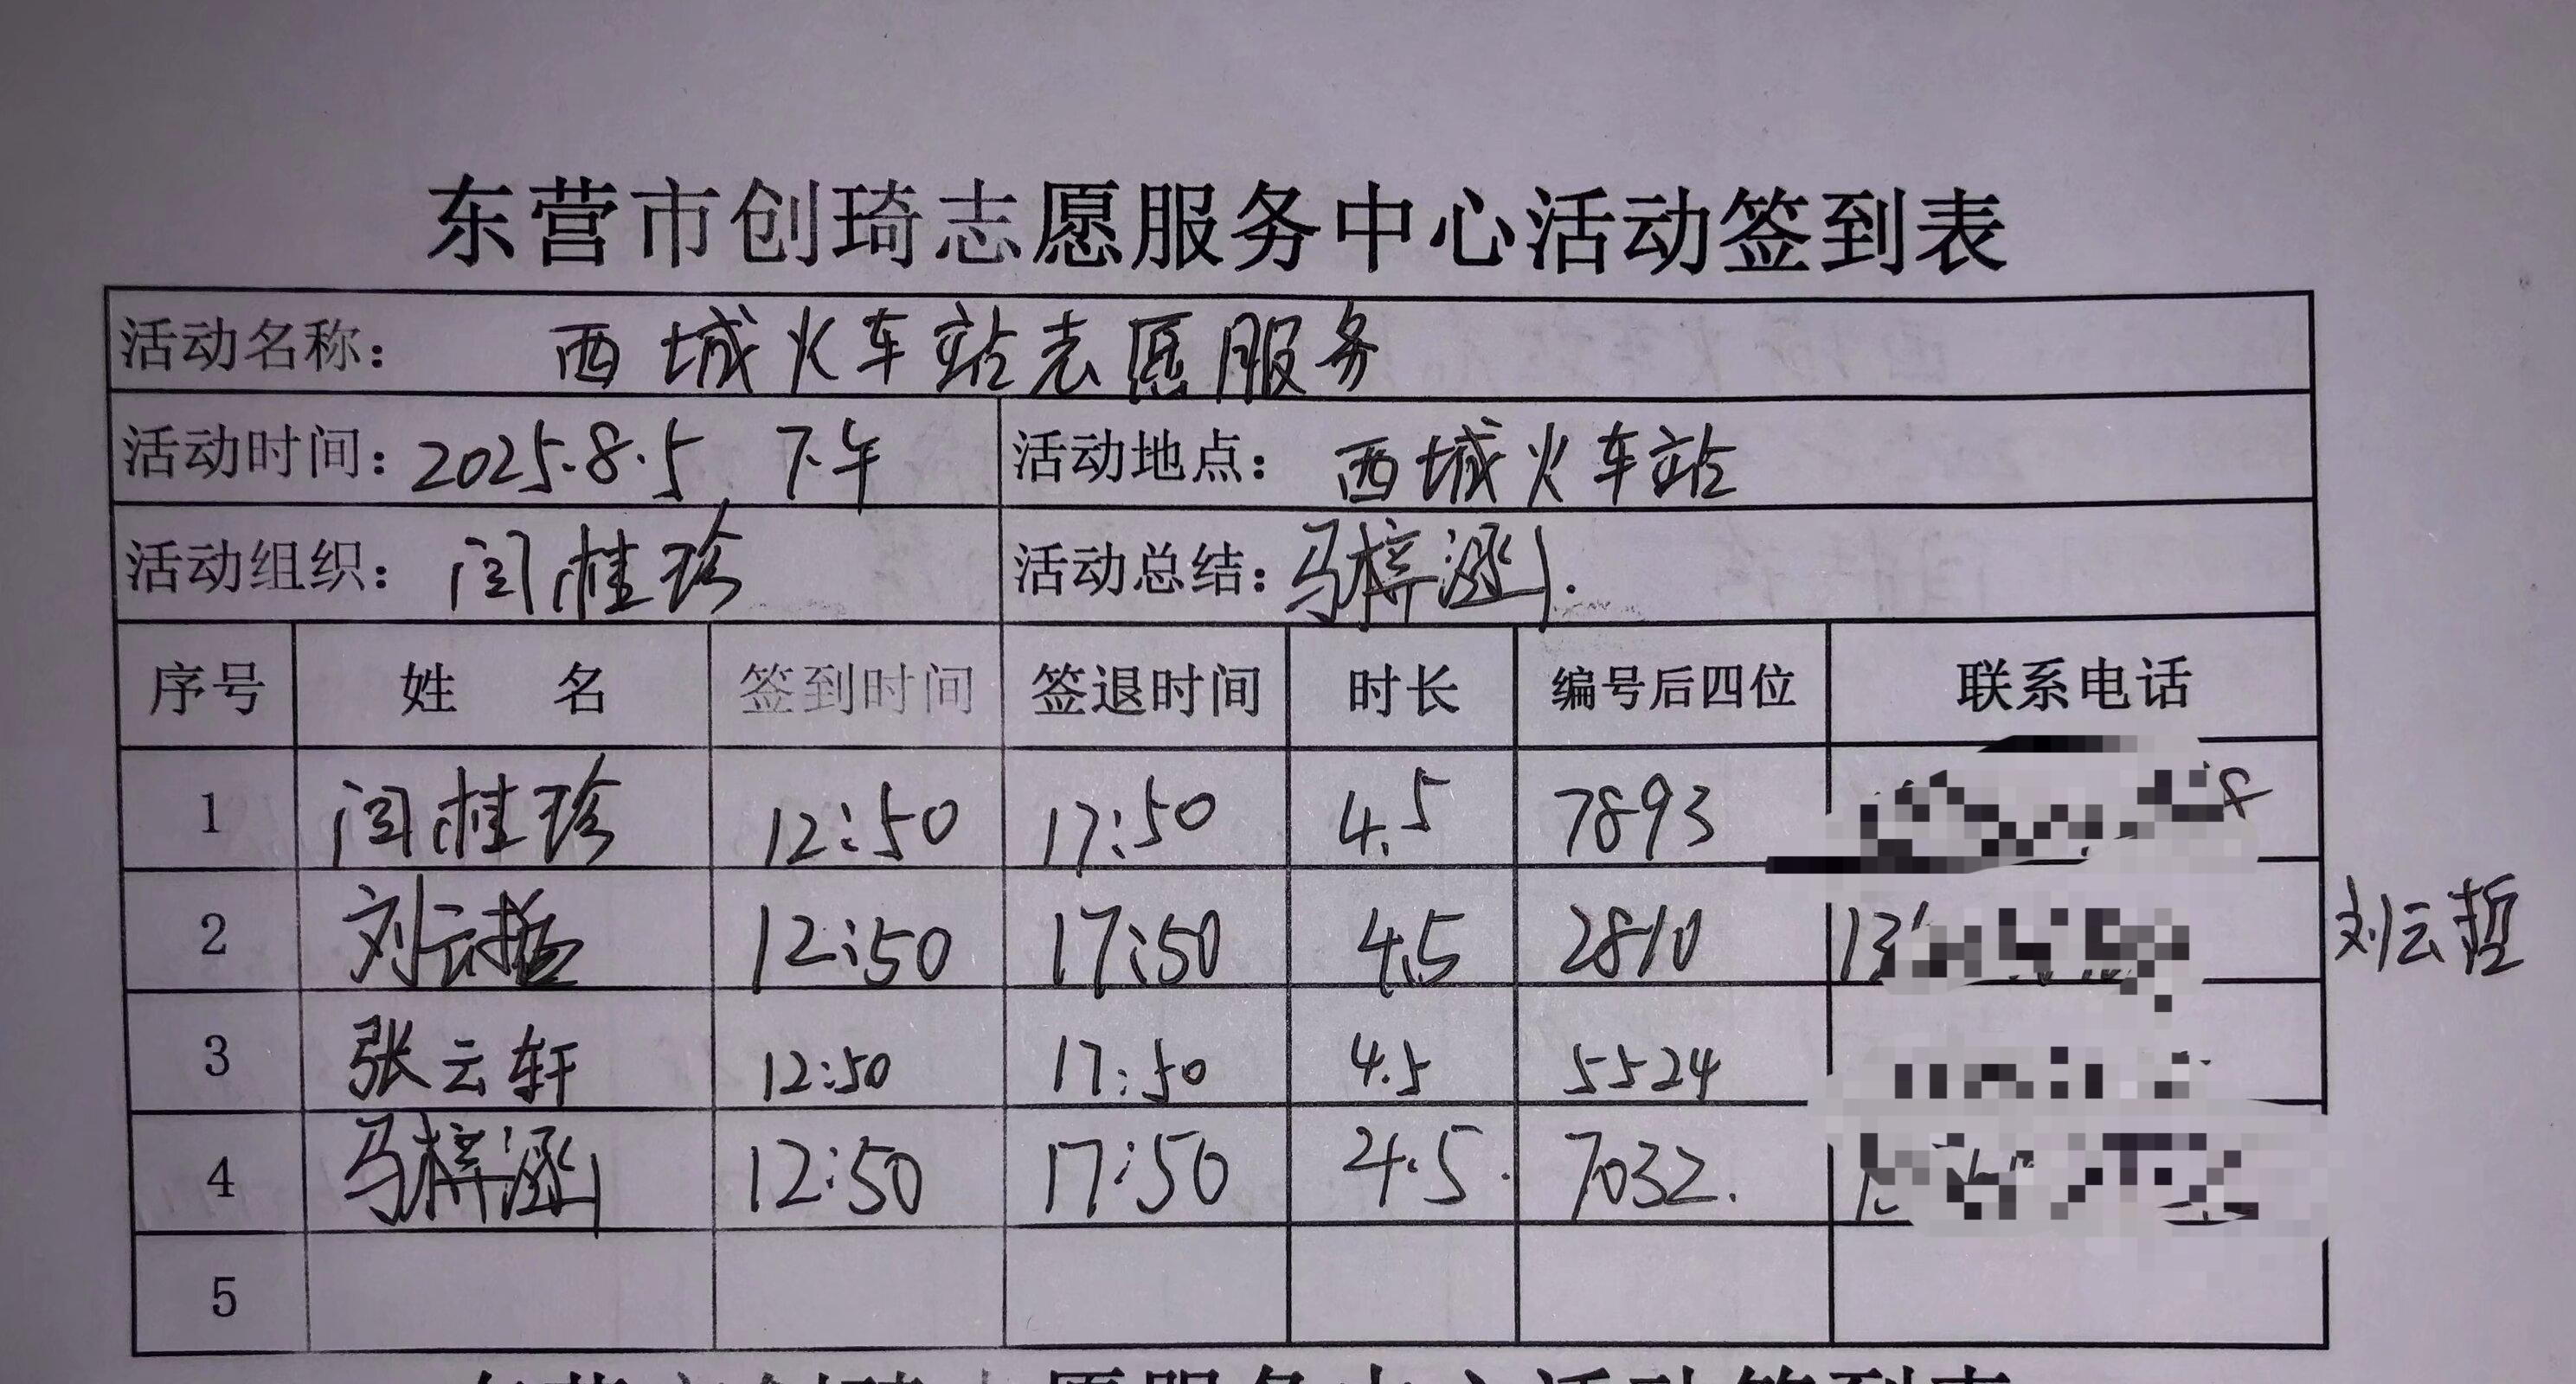 东营市创琦志愿服务中心活动签到表
活动名称： 西城火车站志愿服务
活动时间：2025.8.5 下午 活动地点：西城火车站
活动组织：闫桂珍 活动总结：马梓涵.
序号 姓 名 签到时间 签退时间 时长 编号后四位 联系电话
1 闫桂珍 12:50 17:50 4.5 7893
2 刘云哲 12:50 17:50 4.5 2810 13 刘云哲
3 张云轩 12:50 17:50 4.5 5524
4 马梓涵 12:50 17:50 4.5. 7032.
5
东营市创琦志愿服务中心活动签到表